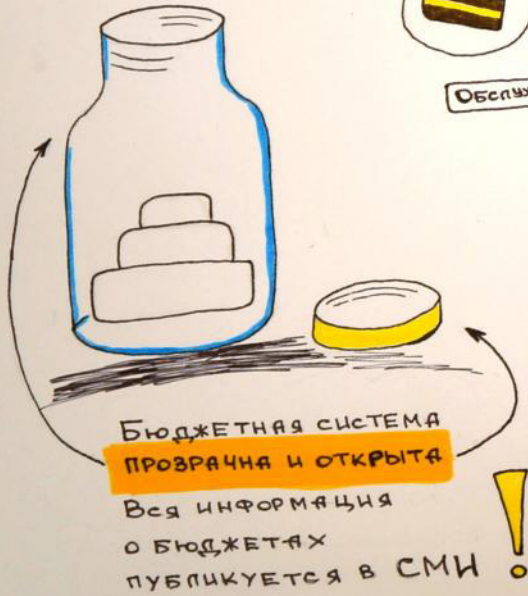 Бюджетная система
прозрачна и открыта
Вся информация
о бюджетах
публикуется в СМИ !